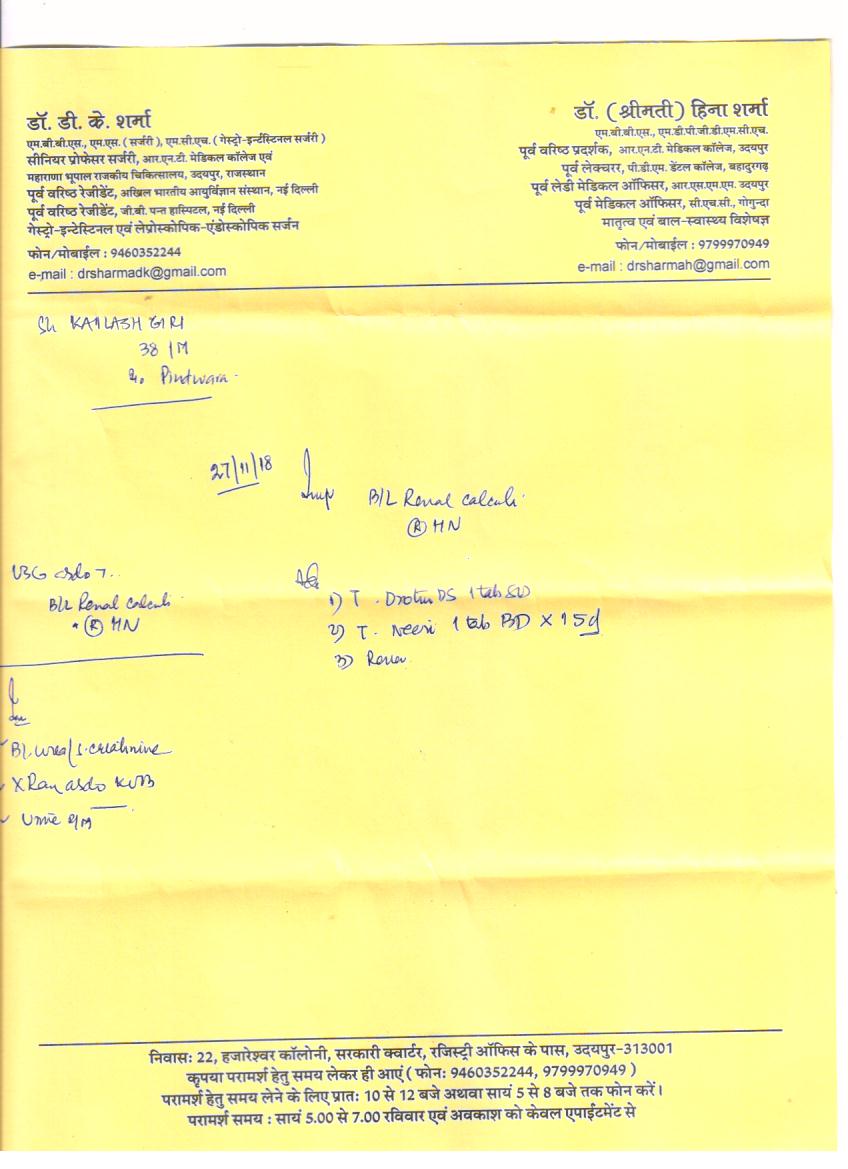 डॉ. डी. के. शर्मा
एम.बी.बी.एस., एम.एस. ( सर्जरी ), एम.सी.एच. ( गेस्ट्रो-इन्टेंस्टिनल सर्जरी )
सीनियर प्रोफेसर सर्जरी, आर.एन.टी. मेडिकल कॉलेज एवं
महाराणा भूपाल राजकीय चिकित्सालय, उदयपुर, राजस्थान
पूर्व वरिष्ठ रेजीडेंट, अखिल भारतीय आयुर्विज्ञान संस्थान, नई दिल्ली
पूर्व वरिष्ठ रेजीडेंट, जी.बी. पन्त हास्पिटल, नई दिल्ली
गेस्ट्रो-इन्टेस्टिनल एवं लेप्रोस्कोपिक-एंडोस्कोपिक सर्जन
फोन/मोबाईल : 9460352244
e-mail : drsharmadk@gmail.com
डॉ. (श्रीमती) हिना शर्मा
एम.बी.बी.एस., एम.डी.पी.जी.डी.एम.सी.एच.
पूर्व वरिष्ठ प्रदर्शक, आर.एन.टी. मेडिकल कॉलेज, उदयपुर
पूर्व लेक्चरर, पी.डी.एम. डेंटल कॉलेज, बहादुरगढ़
पूर्व लेडी मेडिकल ऑफिसर, आर.एस.एम.एम. उदयपुर
पूर्व मेडिकल ऑफिसर, सी.एच.सी., गोगुन्दा
मातृत्व एवं बाल-स्वास्थ्य विशेषज्ञ
फोन/मोबाईल : 9799970949
e-mail : drsharmah@gmail.com
Sh KAILASH GIRI
38 / M
Pindwara
27/11/18
Imp
B/L Renal calculi
(R) HN
USG
B/L Renal calculi
(R) HN
1) T. Drotin DS 1 tab
2) T. Neeri 1 tab BD X 15d
3)
Bl. urea / S. creatinine
X Ray KUB
Urine
निवासः 22, हजारेश्वर कॉलोनी, सरकारी क्वार्टर, रजिस्ट्री ऑफिस के पास, उदयपुर-313001
कृपया परामर्श हेतु समय लेकर ही आएं ( फोनः 9460352244, 9799970949 )
परामर्श हेतु समय लेने के लिए प्रातः 10 से 12 बजे अथवा सायं 5 से 8 बजे तक फोन करें।
परामर्श समय : सायं 5.00 से 7.00 रविवार एवं अवकाश को केवल एपाईंटमेंट से